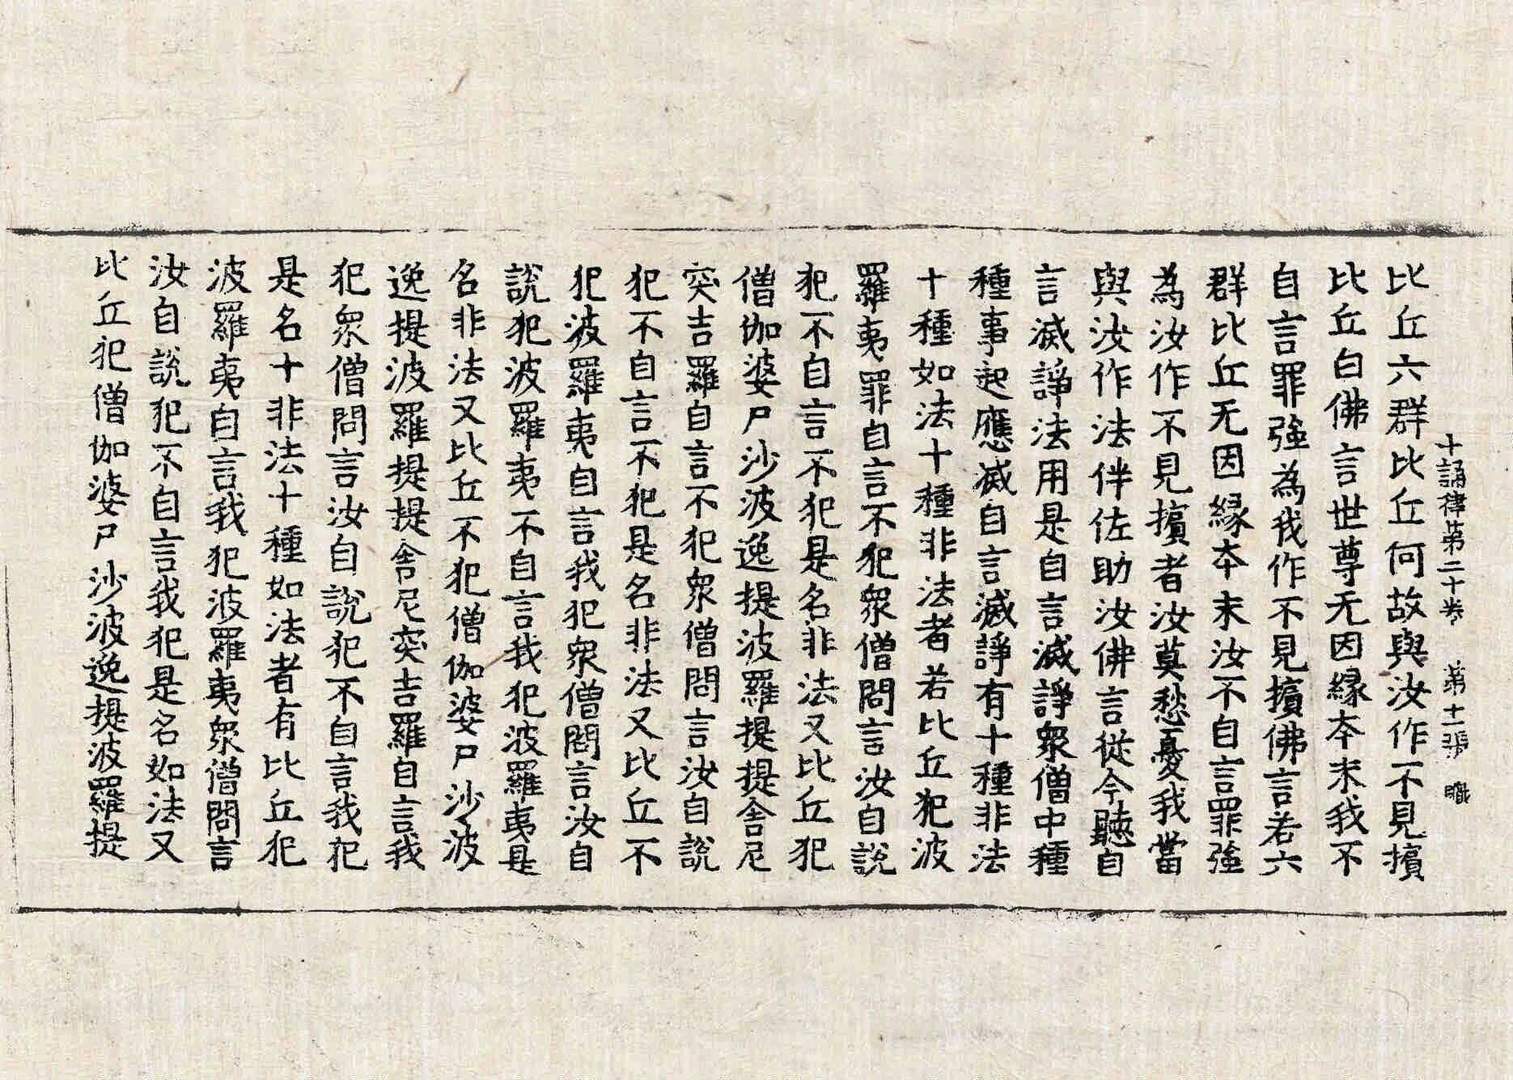 十誦律第二十卷　第十一張　職
比丘六群比丘何故與汝作不見擯
比丘白佛言世尊无因縁夲末我不
自言罪強為我作不見擯佛言若六
群比丘无因縁夲末汝不自言罪強
為汝作不見擯者汝莫愁憂我當
與汝作法伴佐助汝佛言從今聽自
言滅諍法用是自言滅諍衆僧中種
種事起應滅自言滅諍有十種非法
十種如法十種非法者若比丘犯波
羅夷罪自言不犯衆僧問言汝自說
犯不自言不犯是名非法又比丘犯
僧伽婆尸沙波逸提波羅提提舍尼
突吉羅自言不犯衆僧問言汝自說
犯不自言不犯是名非法又比丘不
犯波羅夷自言我犯衆僧問言汝自
說犯波羅夷不自言我犯波羅夷是
名非法又比丘不犯僧伽婆尸沙波
逸提波羅提提舍尼突吉羅自言我
犯衆僧問言汝自說犯不自言我犯
是名十非法十種如法者有比丘犯
波羅夷自言我犯波羅夷衆僧問言
汝自說犯不自言我犯是名如法又
比丘犯僧伽婆尸沙波逸提波羅提